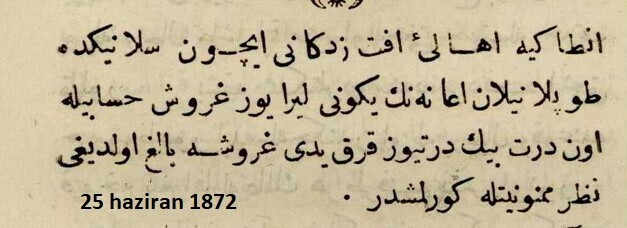 انطاکیه اهالئ افت زدکانی ایچـون سلانیکده
طوپلانیلان اعانه‌نك یکونی لیرا یوز غروش حسابیله
اون درت بیك درتیوز قرق یدی غروشـه بالغ اولدیغی
نظر ممنونیتله کورلمشدر ٠
25 haziran 1872